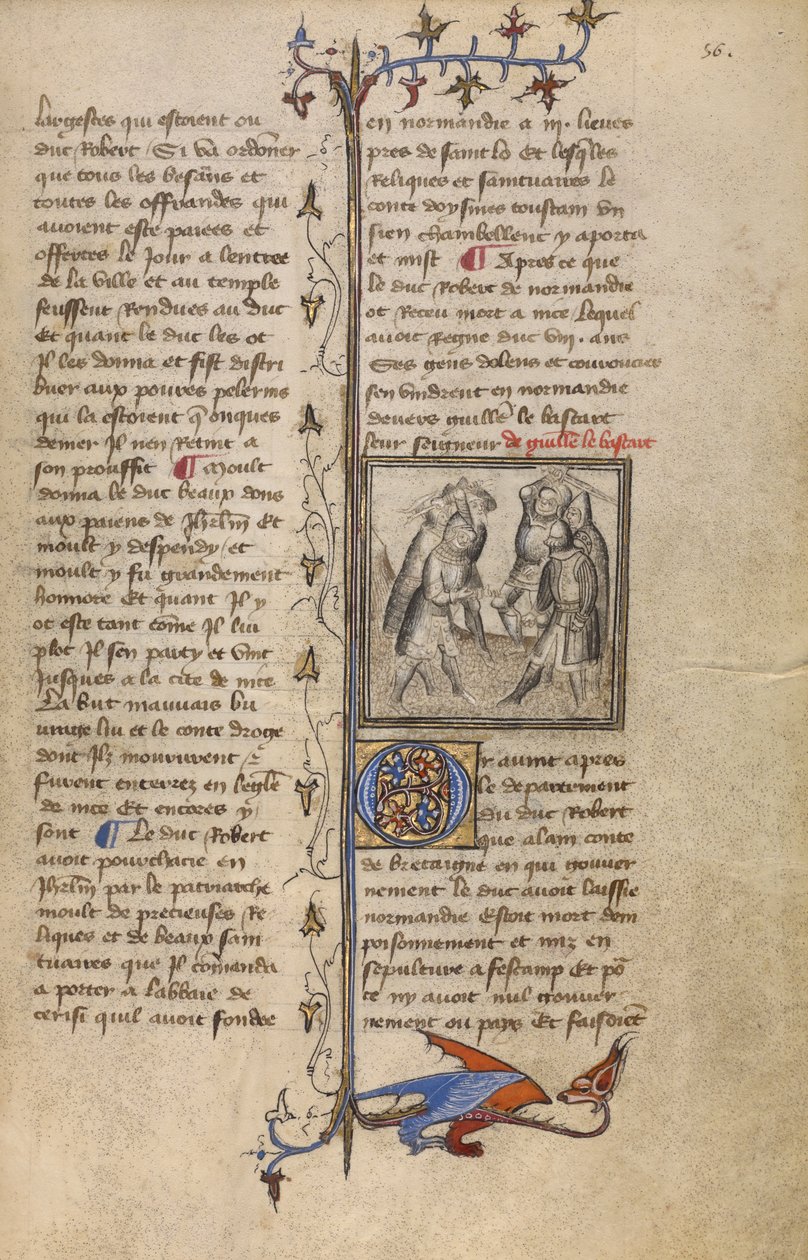 56.
largesces qui estoient ou
duc Robert Si va ordoner
que tous les besans et
toutes les offrandes qui
avoient este paiees et
offertes le Jour a lentree
de la ville et au temple
feussent Rendues au duc
Et quant le duc les ot
Il les donna et fist distri
buer aux poures pelerins
qui la estoient q̄ onques
denier Il nen Retint a
son prouffit ¶ Moult
donna le duc beaux dons
aux paiens de Jhrlm̄ Et
moult y despendy et
moult y fu grandement
honnore Et quant Il y
ot este tant cōme Il lui
plot Il sen party et vint
Jusques a la cite de nice
La but mauvais bu
urage lui et le conte droge
dont Ilz moururent &
furent enterrez en leglē
de nice Et encores y
sont ¶ Le duc Robert
avoit pourchacie en
Jhrlm̄ par le patriarche
moult de precieuses Re
liques et de beaux sain
tuaires que Il cōmanda
a porter a labbaie de
cerisi quil avoit fondee
en normandie a iii. lieues
pres de saint lo Et lesqlles
Reliques et saintuaires le
conte doysmes toustain vn
sien chambellenc y aporta
et mist ¶ Apres ce que
le duc Robert de normandie
ot Receu mort a nice Lequel
avoit Regne duc viii. ans
Ses gens dolens et couroucies
sen vindrent en normandie
devers guillē le bastart
leur seigneur de guillē le bastart
Or avint apres
le departement
du duc Robert
que alain conte
de bretaigne en qui gouver
nement le duc avoit laissie
normandie Estoit mort dem
poisonnement et mis en
sepulture a fescamp Et po
ce ny avoit nul gouver
nement ou pays Et faisoient